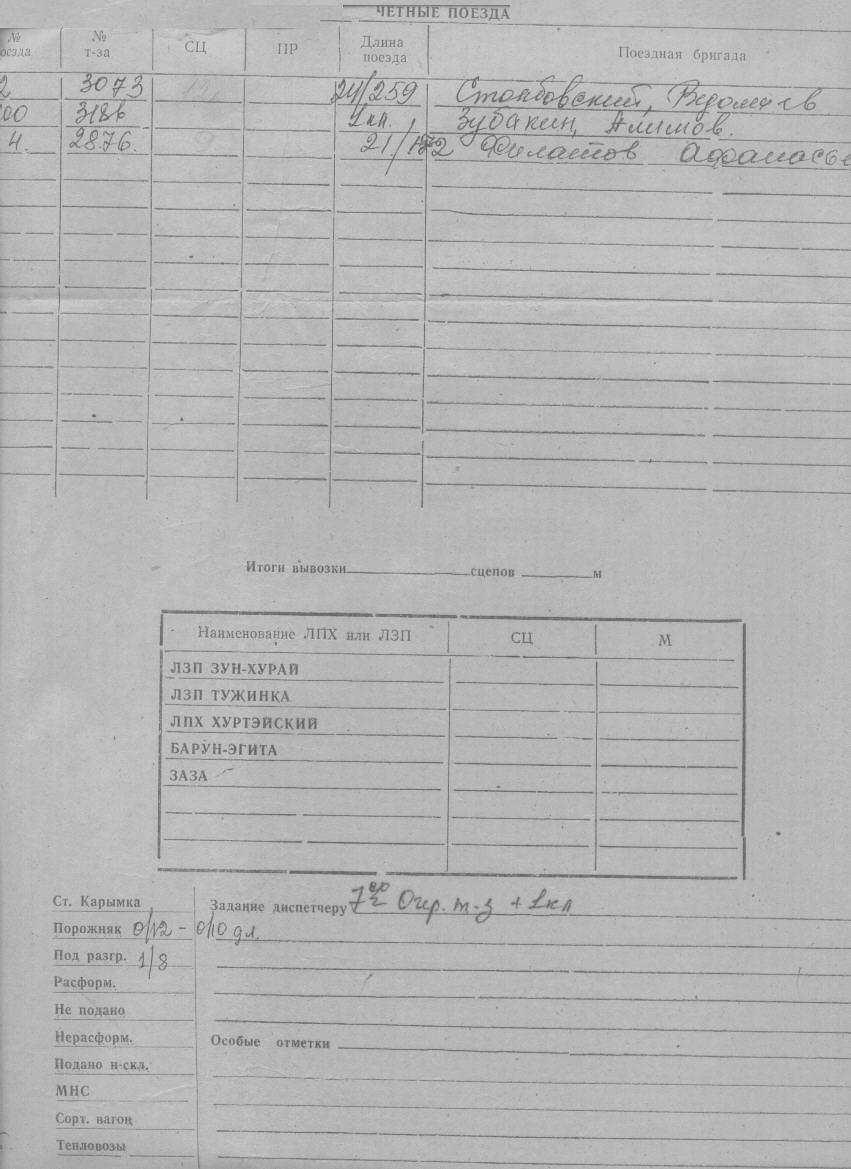 ЧЕТНЫЕ ПОЕЗДА
№ оезда № т-за СЦ ПР Длина поезда Поездная бригада
2 3073 12 24/259 Столбовский,
00 3186 1кл. Зубакин, Алимов.
4. 2876. 9 21/172 Филатов Афанасье
Итоги вывозки сцепов м
Наименование ЛПХ или ЛЗП СЦ М
ЛЗП ЗУН-ХУРАЙ
ЛЗП ТУЖИНКА
ЛПХ ХУРТЭЙСКИЙ
БАРУН-ЭГИТА
ЗАЗА
Ст. Карымка
Порожняк 0/12 - 0/10 дл.
Под разгр. 1/8
Расформ.
Не подано
Нерасформ.
Подано н-скл.
МНС
Сорт. вагон
Тепловозы
Задание диспетчеру 7 Огр. т-з + 1кл
Особые отметки